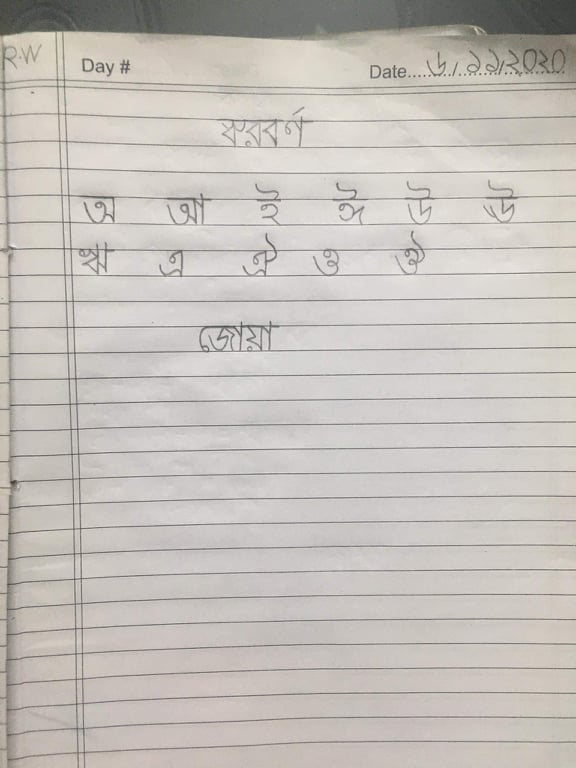 R.W
Day #
Date......৬/১১/২০২০
স্বরবর্ণ
অ আ ই ঈ উ ঊ
ঋ এ ঐ ও ঔ
জোয়া